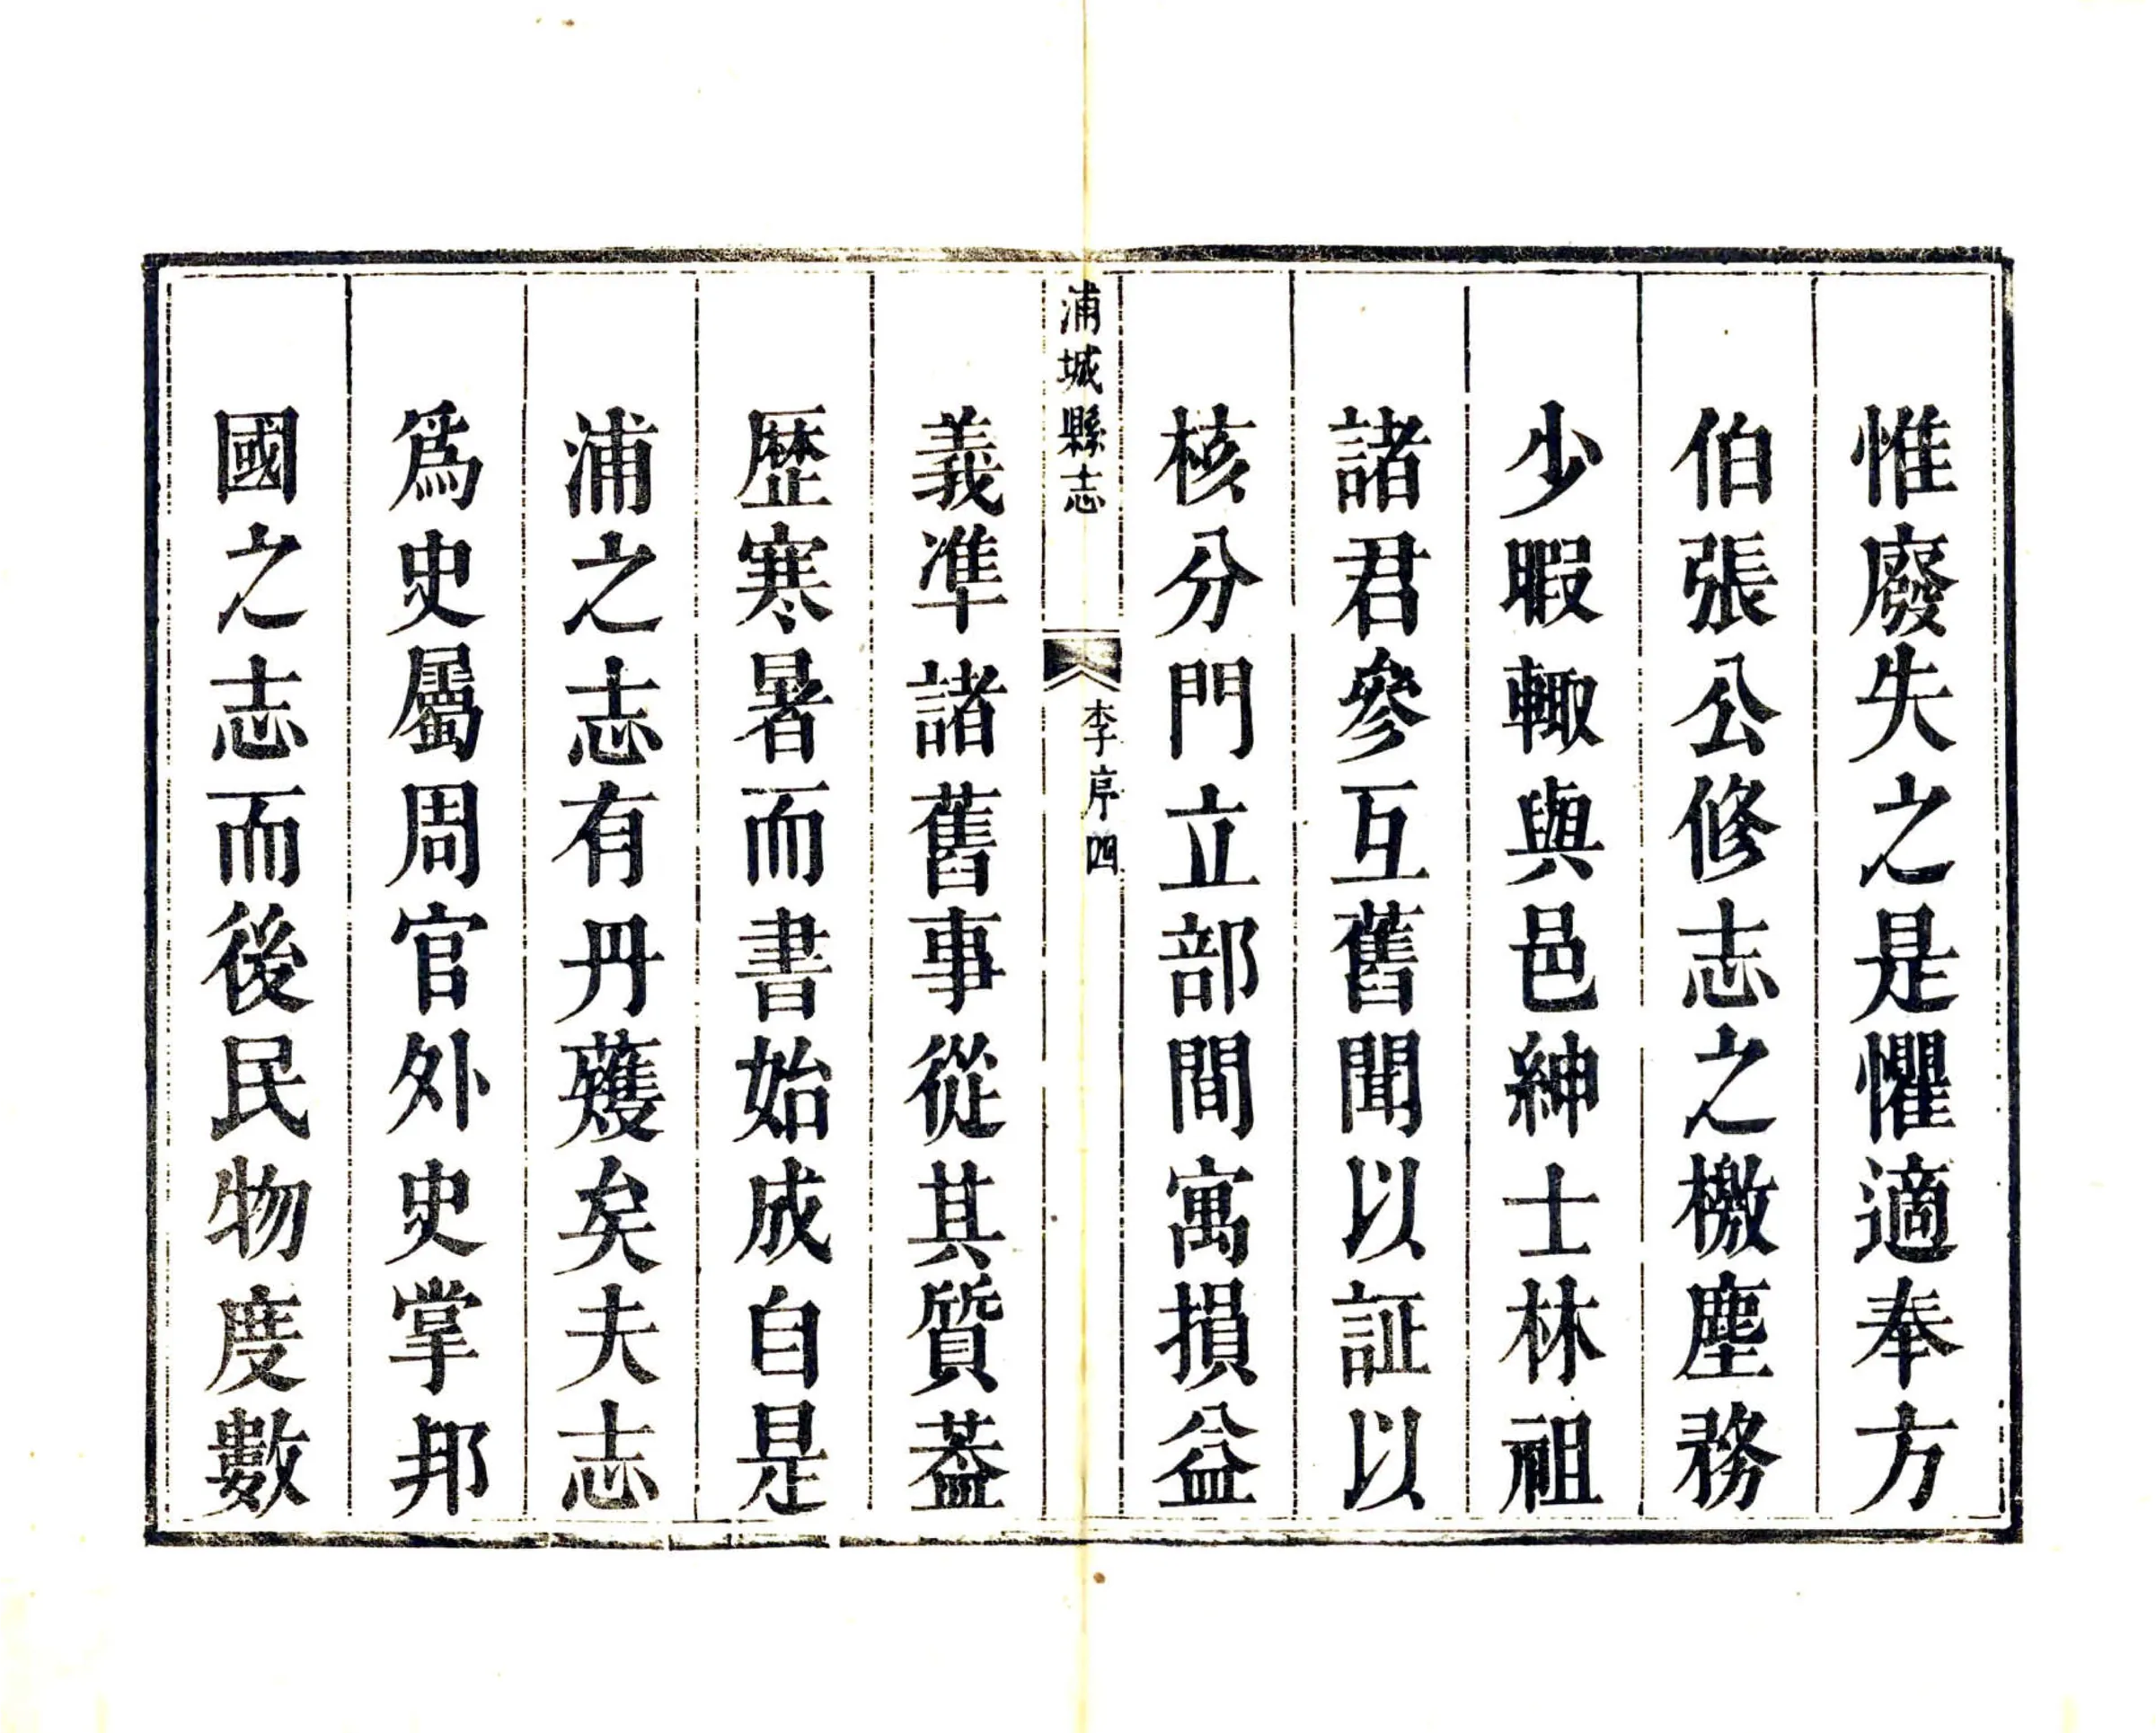 惟廢失之是懼適奉方
伯張公修志之檄塵務
少暇輙與邑紳士林祖
諸君參互舊聞以証以
核分門立部間寓損益
浦城縣志
李序四
義準諸舊事從其質葢
歴寒暑而書始成自是
浦之志有丹雘矣夫志
爲史屬周官外史掌邦
國之志而後民物度數